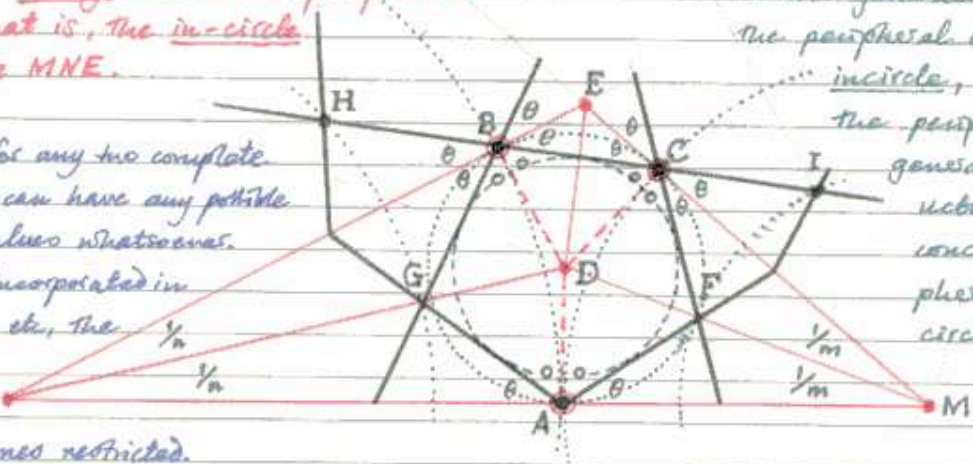 at is, the in-circle
MNE.
for any two complete
can have any possible
values whatsoever.
incorporated in
etc, the
restricted.
the peripheral
incircle,
the
gener
conc
circ
H
B
E
C
I
G
D
F
A
M
θ
θ
θ
θ
θ
θ
θ
θ
θ
θ
1/n
1/n
1/m
1/m